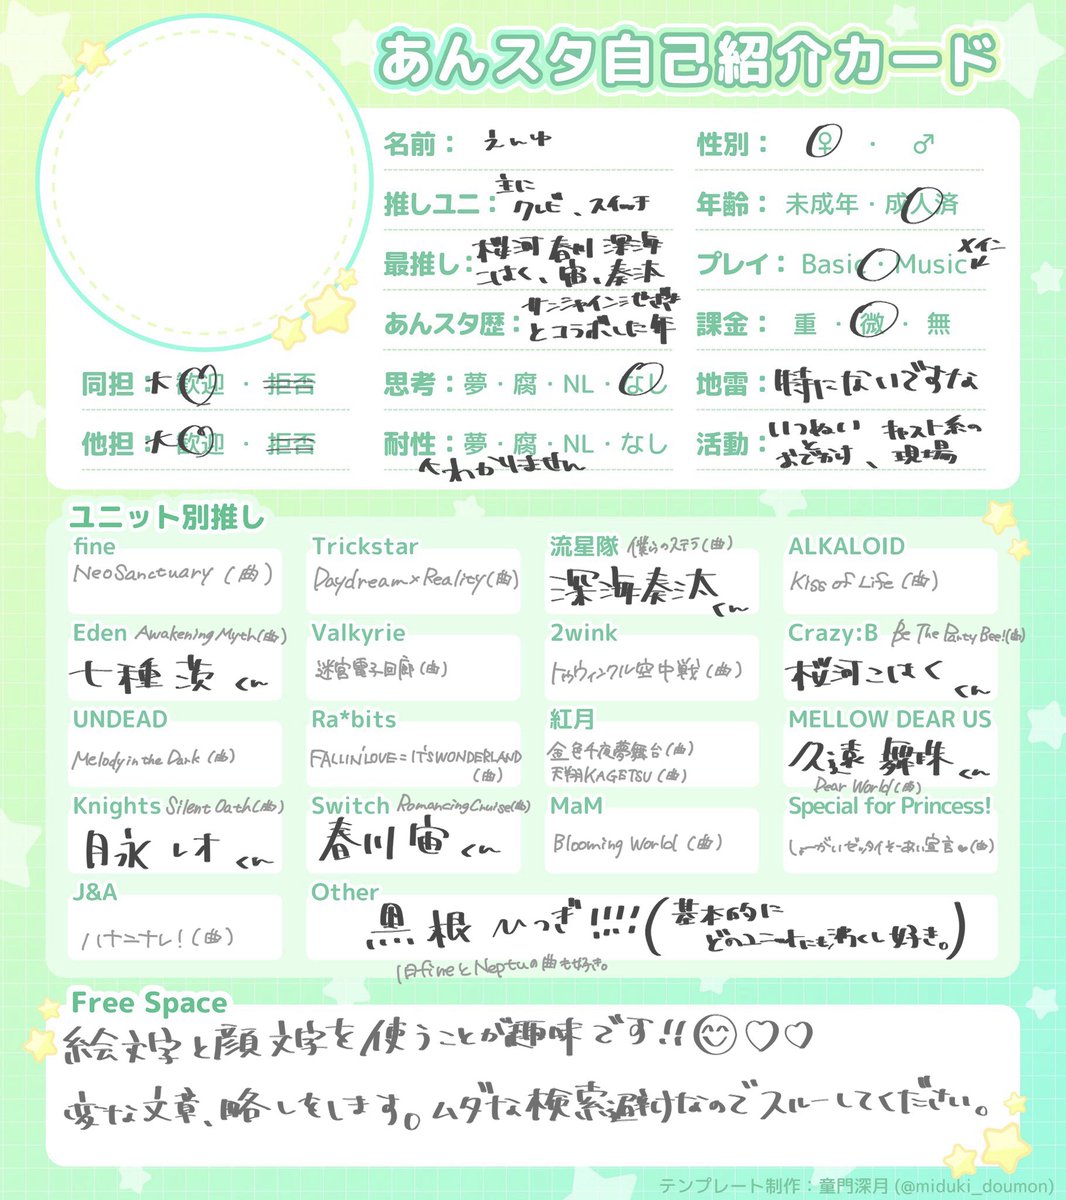 あんスタ自己紹介カード
名前： えんゆ
性別： ♀ ・ ♂
推しユニ： 主に クレビ、スイッチ
年齢： 未成年・成人済
最推し： 桜河こはく、春川宙、深海奏汰
プレイ： Basic・Music メイン
あんスタ歴： サンシャイン とコラボした年
課金： 重 ・ 微 ・ 無
同担： 大 歓迎 ・ 拒否
思考： 夢・腐・NL・なし
地雷： 特にないですな
他担： 大 歓迎 ・ 拒否
耐性： 夢・腐・NL・なし
わかりません
活動： いつぬい とか おでかけ、キャスト系の現場
ユニット別推し
fine
NeoSanctuary (曲)
Trickstar
Daydream×Reality(曲)
流星隊 僕らのステラ(曲)
深海奏汰くん
ALKALOID
Kiss of Life (曲)
Eden Awakening Myth(曲)
七種茨くん
Valkyrie
迷宮電子回廊(曲)
2wink
トゥウィンクル空中戦(曲)
Crazy:B Be The Party Bee!(曲)
桜河こはくくん
UNDEAD
Melody in the Dark (曲)
Ra*bits
FALLIN'LOVE=IT'S WONDERLAND (曲)
紅月
金色千夜夢舞台(曲)
天翔KAGETSU (曲)
MELLOW DEAR US
久遠舞珠くん
Dear World(曲)
Knights Silent Oath(曲)
月永レオくん
Switch Romancing Cruise(曲)
春川宙くん
MaM
Blooming World (曲)
Special for Princess!
しょーがいゼッタイそーあい宣言♥(曲)
J&A
ハナニナレ！(曲)
Other
黒根ひつぎ!!!!(基本的にどのユニットにも満く好き。)
旧fineとNeptuの曲も好き。
Free Space
絵文字と顔文字を使うことが趣味です!!😊♡♡
変な文章、略しをします。ムダな検索避けなのでスルーしてください。
テンプレート制作：童門深月 (@miduki_doumon)